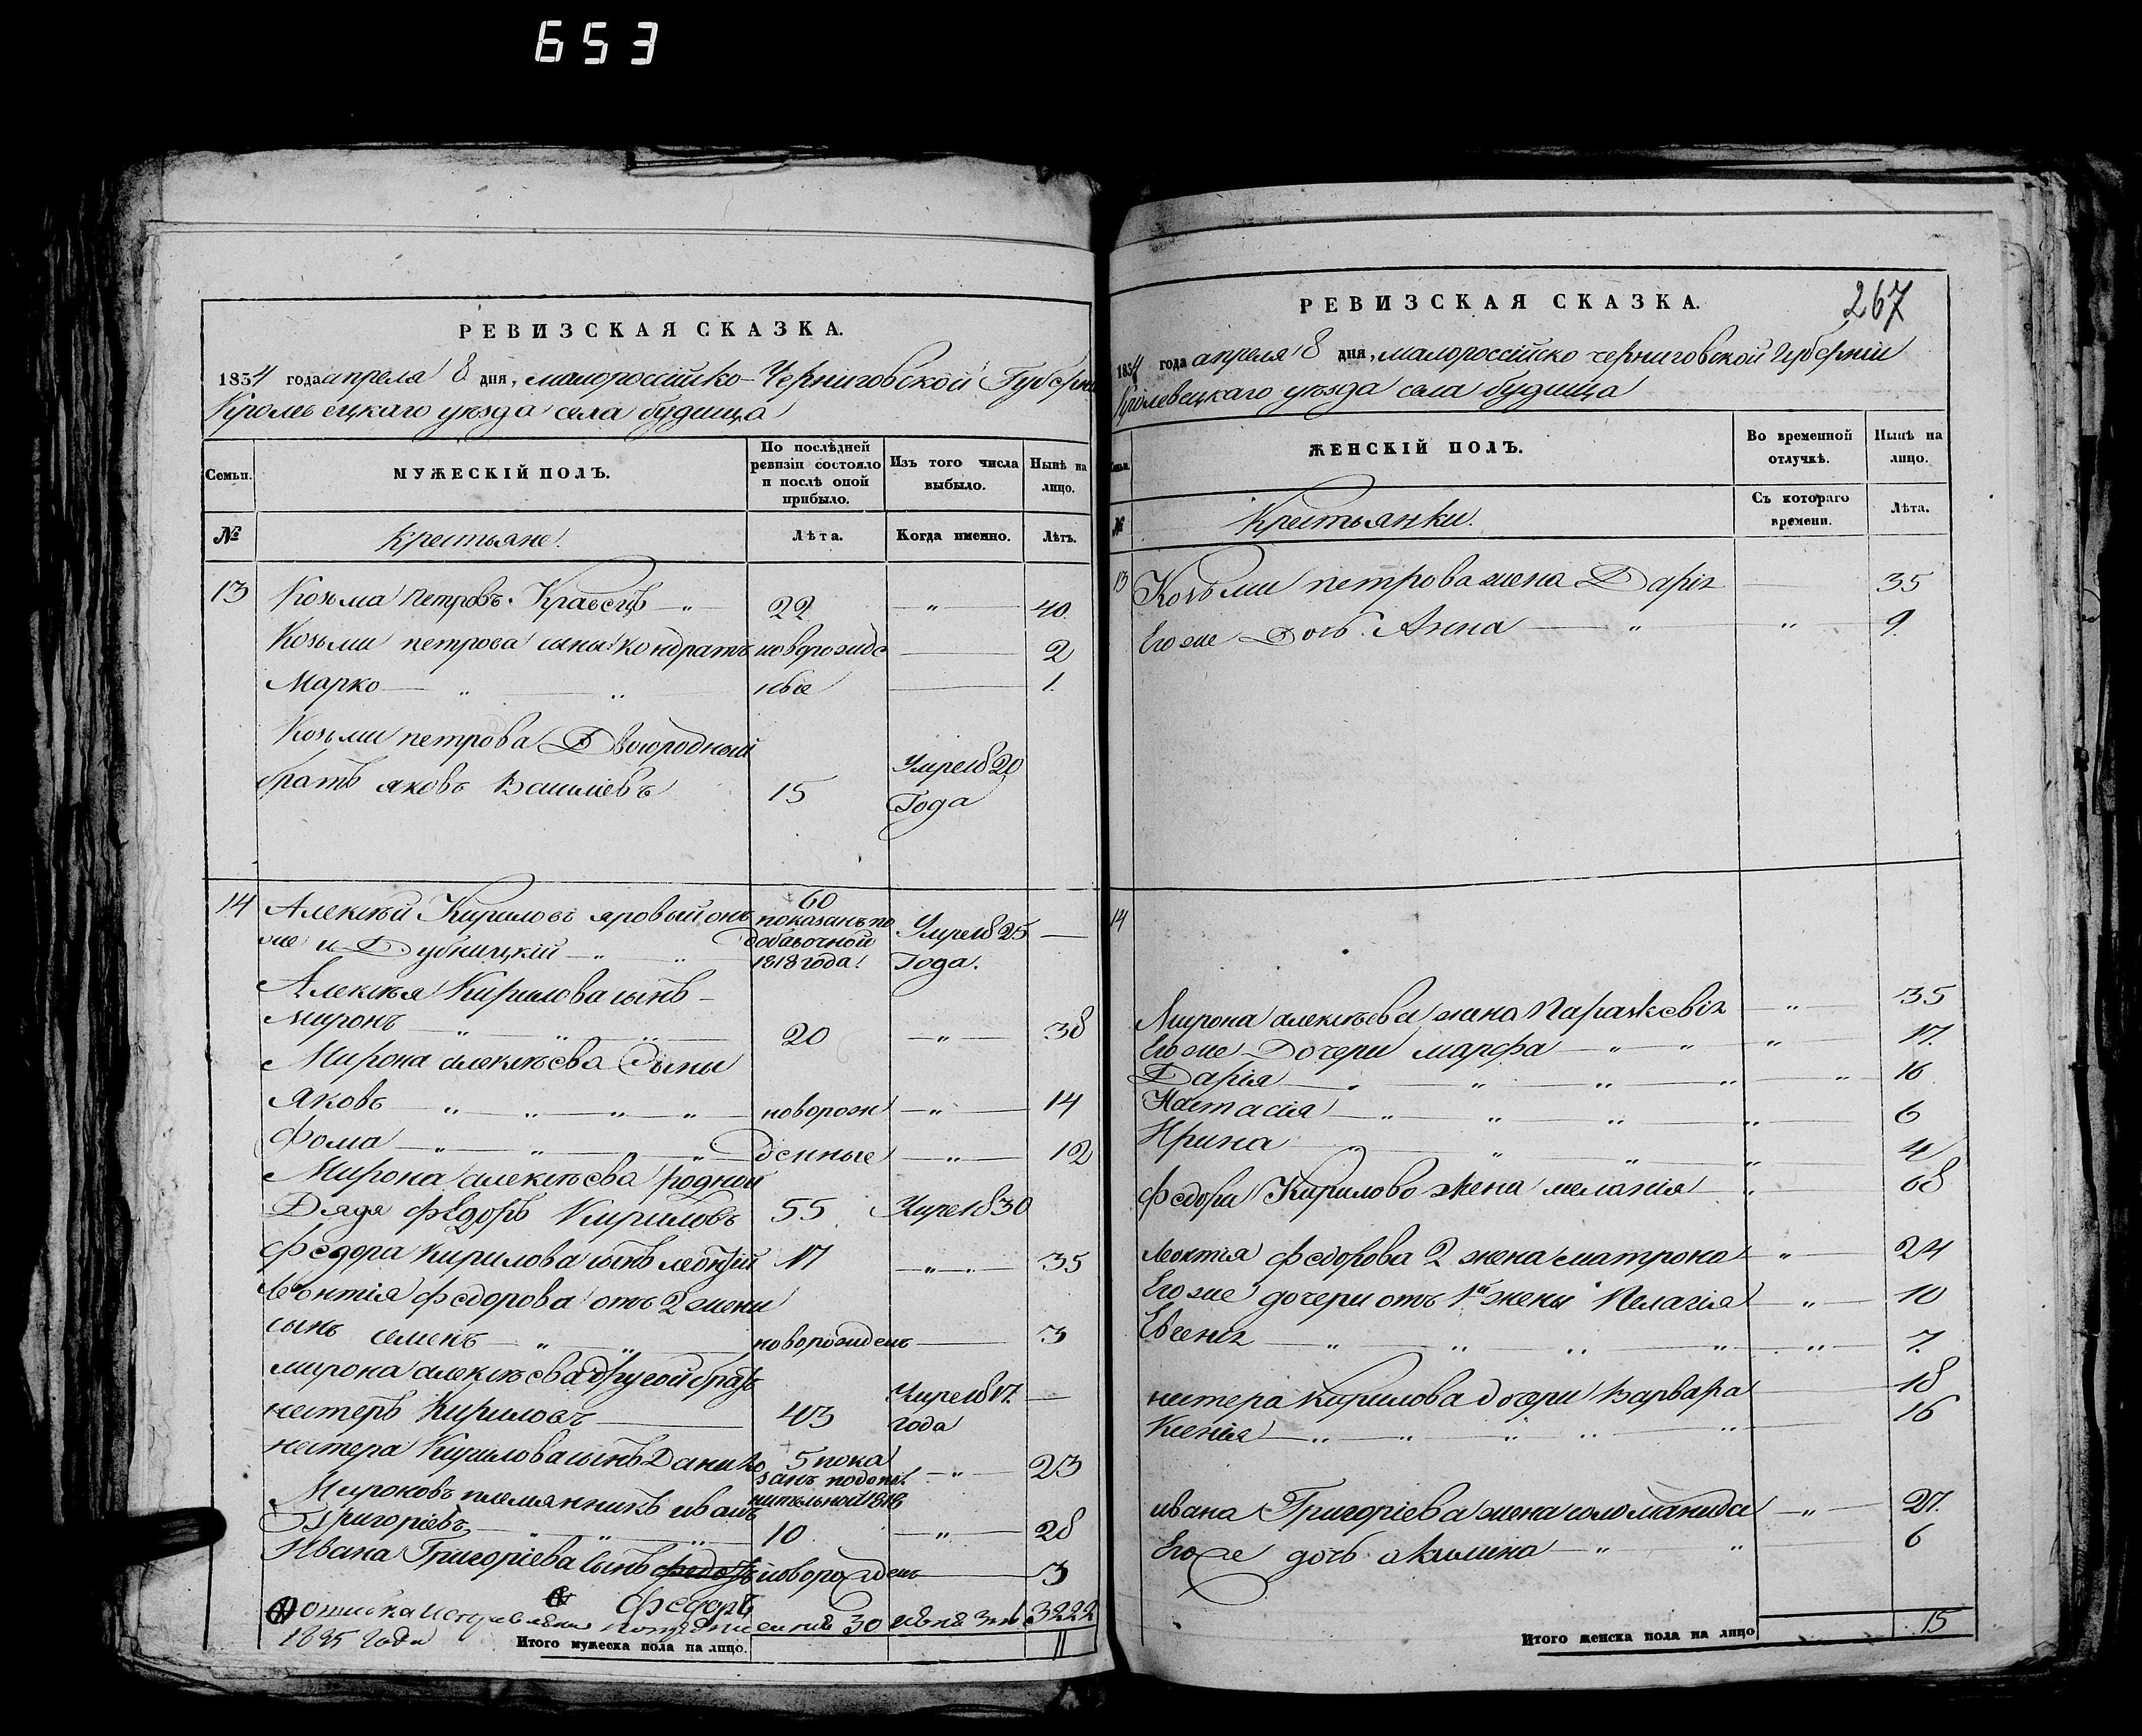 653
РЕВИЗСКАЯ СКАЗКА.
1834 года апреля 8 дня, малороссійско-Черниговской Губерни
Кролевецкаго уезда села будища
Семьи.
МУЖЕСКІЙ ПОЛЪ.
По послѣдней ревизіи состояло и послѣ оной прибыло.
Изъ того числа выбыло.
Нынѣ на лицо.
№
Крестьяне.
Лѣта.
Когда именно.
Лѣтъ.
13 Козьма Петровъ Кравецъ 22 40
Козьми петрова сыны: кондратъ новорожде 2
Марко нные 1
Козьми петрова Двоюродный
братъ яковъ Василіевъ 15 Умре 1820 Года
14 Алексѣй Кириловъ яровый онъ 60 показанъ по Умре 1825
же и Дубницкій добавочной 1818 года Года.
Алексѣя Кирилова сынъ
Миронъ 20 38
Мирона алексѣева Сыны
Яковъ новорож 14
Фома денные 12
Мирона алексѣева родной
Дядя Федоръ Кириловъ 55 Умре 1830
Федора Кирилова сынъ леонтій 17 35
Леонтія Федорова отъ 2 жени
сынъ семенъ новорожденъ 3
мирона алексѣева другой братъ
нестеръ Кириловъ 43 Умре 1817 года
нестера Кирилова сынъ Данило 5 пока 23
занъ по допол
нительной 1818
Мироновъ племянникъ иванъ
Григоріевъ 10 28
Ивана Григоріева сынъ федотъ новорожденъ 3
Федоръ
ошибка
1835 года
Итого мужеска пола на лицо. 11
РЕВИЗСКАЯ СКАЗКА.
267
1834 года апреля 8 дня, малороссійско черниговской Губерніи
Кролевецкаго уезда села будища
Семьи.
ЖЕНСКІЙ ПОЛЪ.
Во временной отлучкѣ.
Нынѣ на лицо.
№
Крестьянки.
Съ котораго времени.
Лѣта.
13 Козьми петрова жена Дарія 35
Его же Дочь Анна 9
14
Мирона алексѣева жена Параскевія 35
Его же Дочери марфа 17
Дарія 16
Настасія 6
Ирина 4
Федора Кирилова жена меланія 68
Леонтія Федорова 2 жена матрона 24
Его же дочери отъ 1й жены Пелагія 10
Евгенія 7
нестера Кирилова дочери Варвара 18
Ксенія 16
ивана Григоріева жена соломанида 27
Его же дочь акилина 6
Итого женска пола на лицо 15